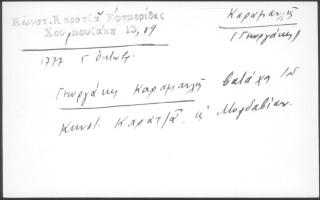 Κωνστ. Καρατζᾶ Ἐφημερίδες
Χουρμουζάκη 13, 89
Καραμανλῆς
(Γεωργάκης)
1777 5 Ὀκτωβρ.
Γεωργάκης Καραμανλῆς βατάχη
Κωνστ. Καρατζᾶ. εἰς Μολδαβίαν.